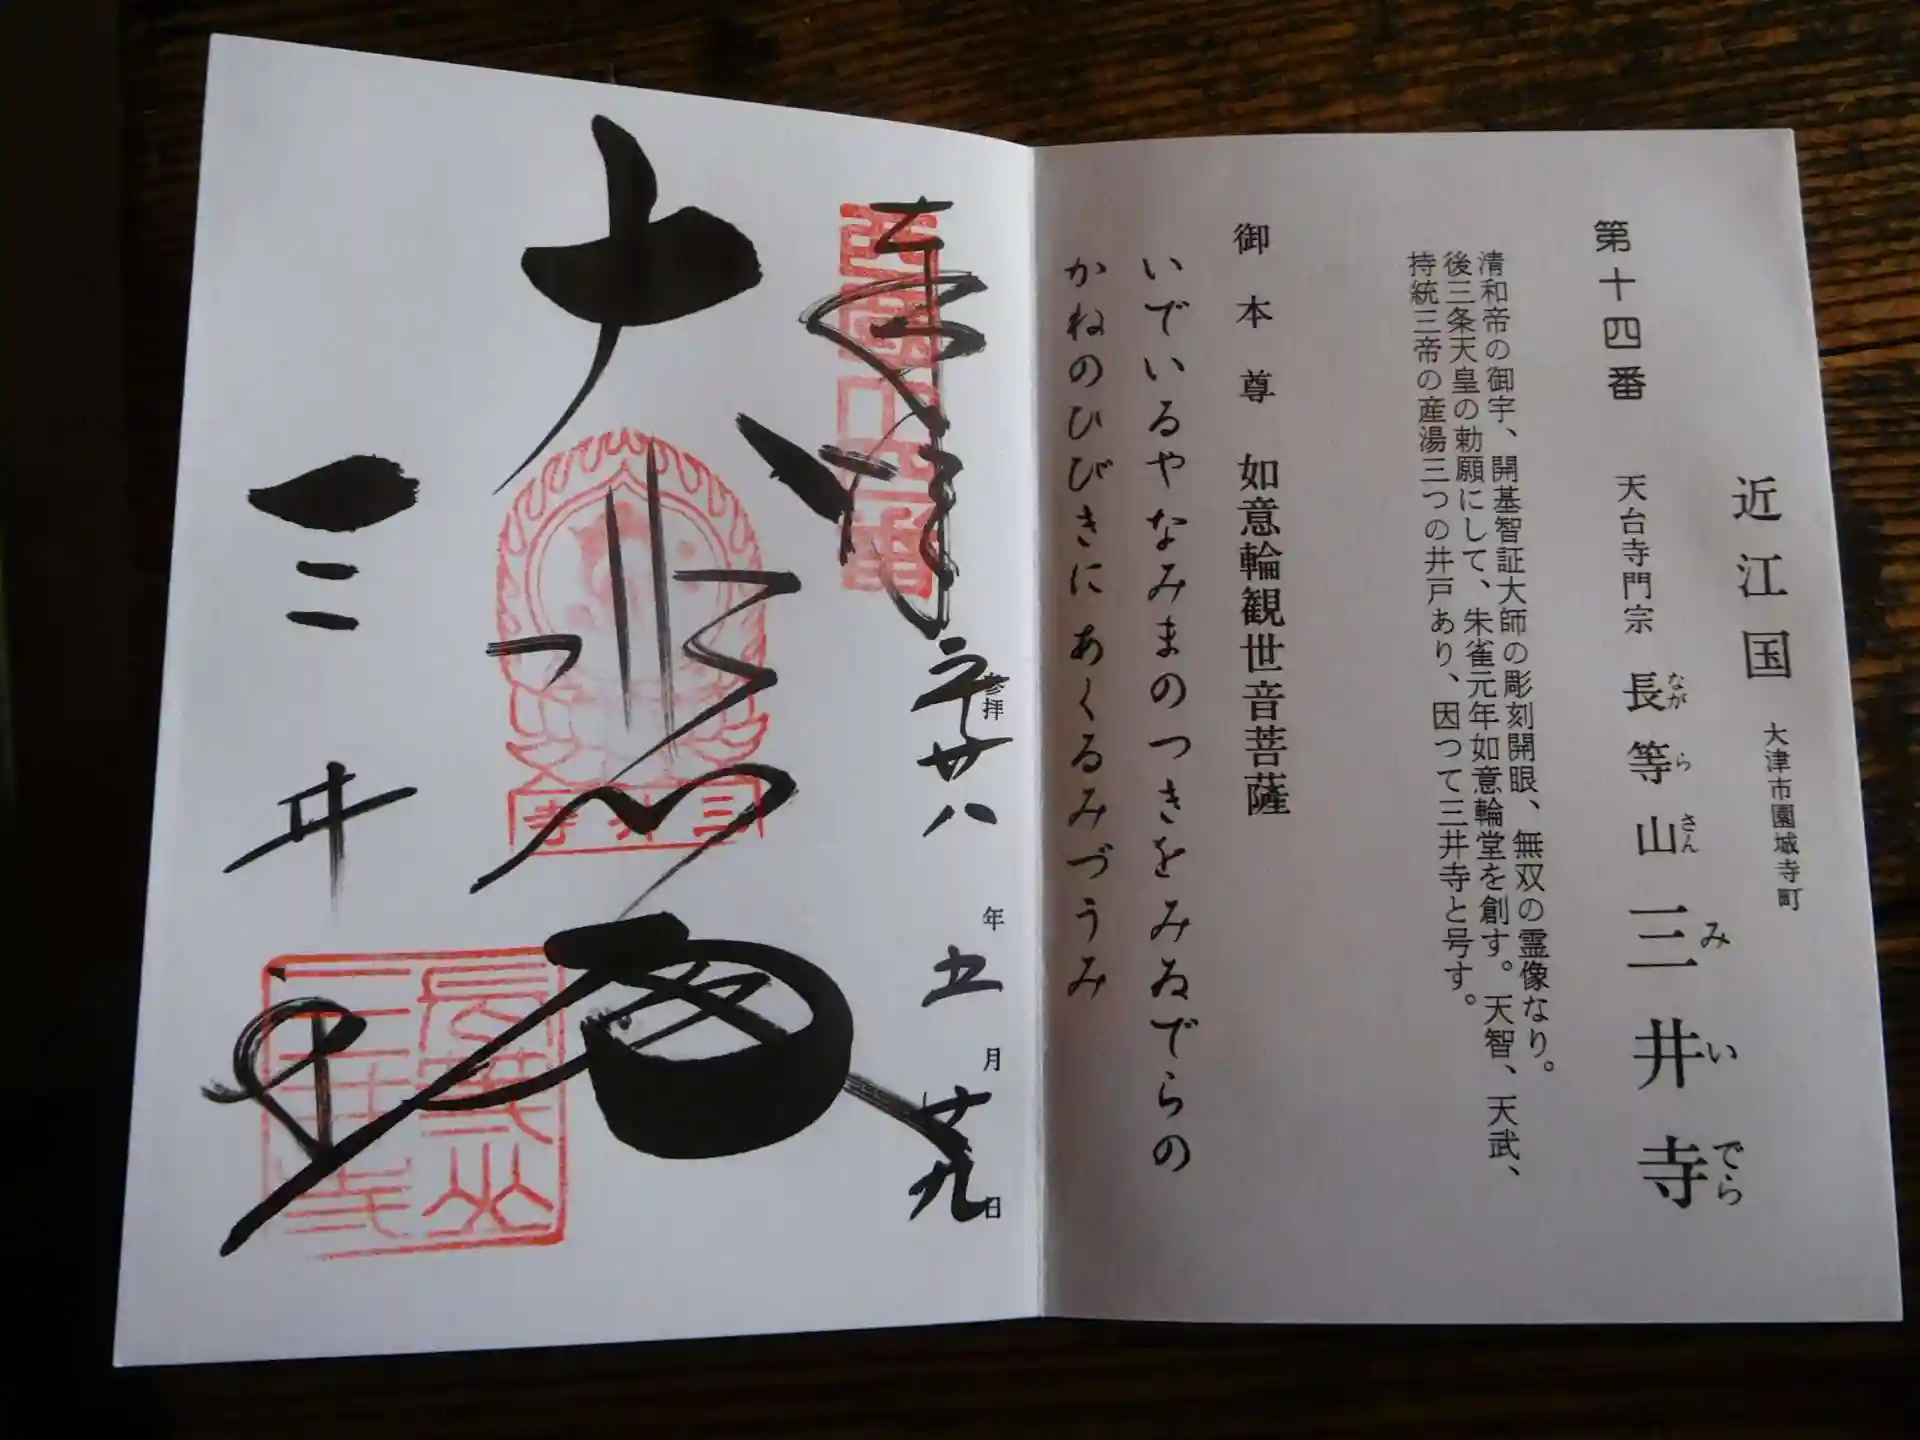 近江国 大津市園城寺町
第十四番 天台寺門宗 長等山 三井寺
なが ら さん み い でら
清和帝の御宇、開基智証大師の彫刻開眼、無双の霊像なり。
後三条天皇の勅願にして、朱雀元年如意輪堂を創す。天智、天武、
持統三帝の産湯三つの井戸あり、因つて三井寺と号す。
御本尊 如意輪観世音菩薩
いでいるやなみまのつきをみゐでらの
かねのひびきに あくるみづうみ
奉拝
参拝 平廿八年五月廿九日
西国十四番
大悲殿
三井寺
三井寺
長等山
三井寺